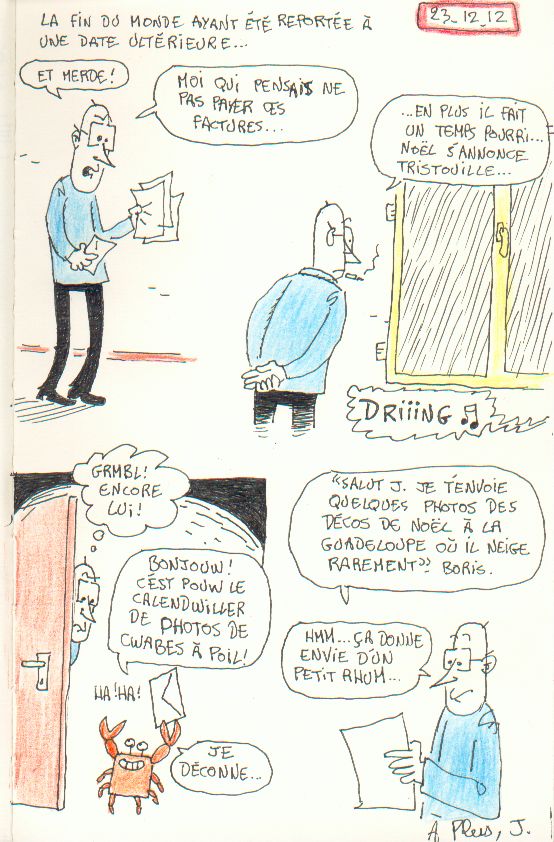 LA FIN DU MONDE AYANT ÉTÉ REPORTÉE À
UNE DATE ULTÉRIEURE...
23_12_12
ET MERDE!
MOI QUI PENSAIS NE
PAS PAYER CES
FACTURES...
...EN PLUS IL FAIT
UN TEMPS POURRI...
NOËL S'ANNONCE
TRISTOUILLE...
DRIIING
GRMBL!
ENCORE
LUI!
BONJOUW!
C'EST POUW LE
CALENDWILLER
DE PHOTOS DE
CWABES À POIL!
HA!HA!
JE
DÉCONNE...
"SALUT J. JE T'ENVOIE
QUELQUES PHOTOS DES
DÉCOS DE NOËL À LA
GUADELOUPE OÙ IL NEIGE
RAREMENT" BORIS.
HMM... ÇA DONNE
ENVIE D'UN
PETIT RHUM...
A PLUS, J.